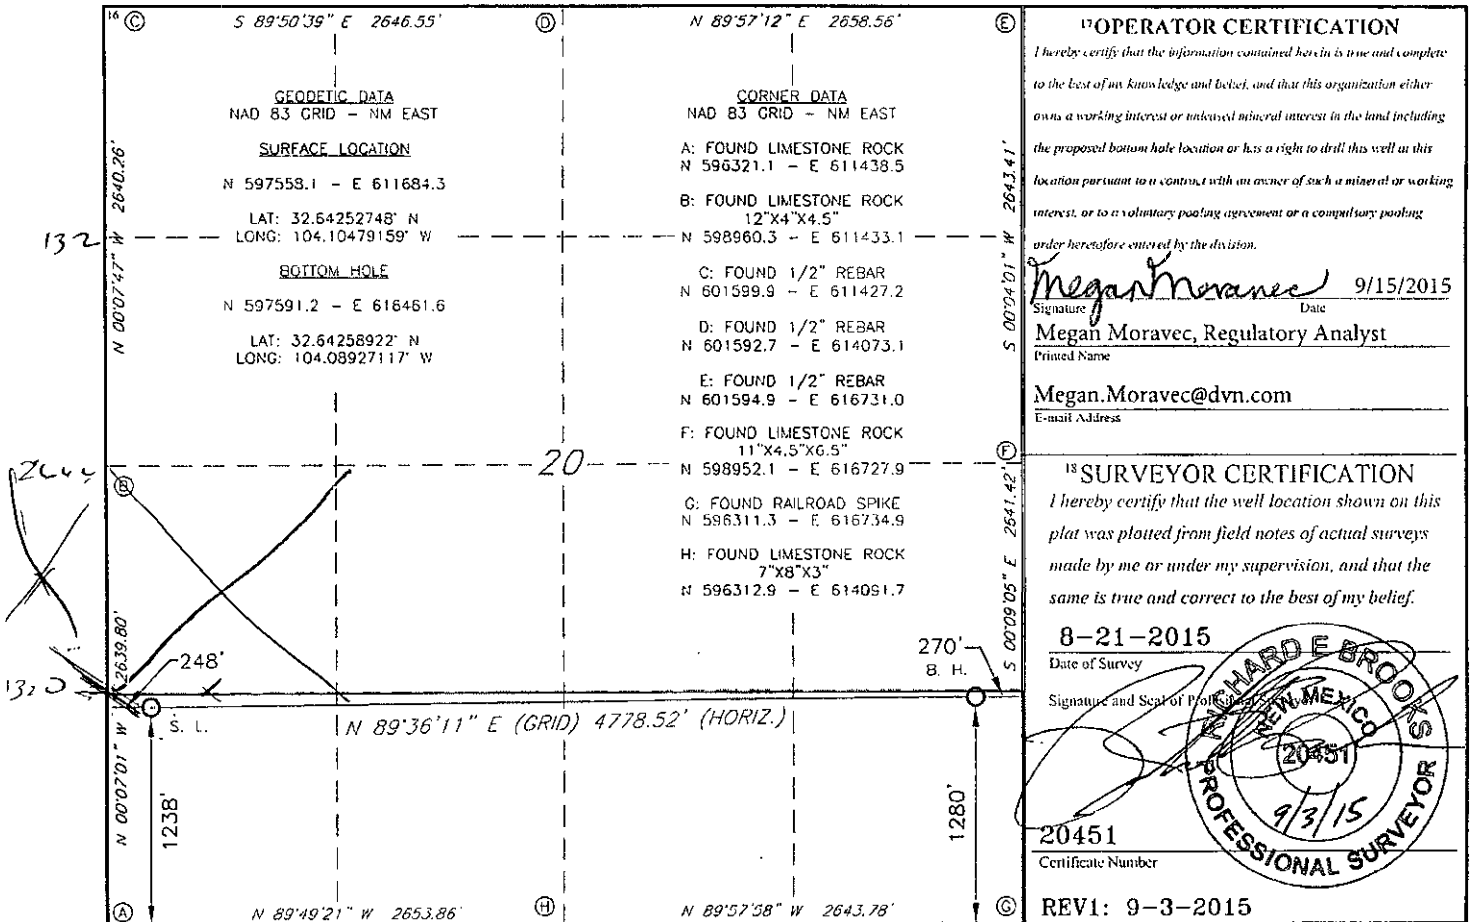 16
C
S 89°50'39" E 2646.55'
D
N 89°57'12" E 2658.56'
E
GEODETIC DATA
NAD 83 GRID - NM EAST
SURFACE LOCATION
N 597558.1 - E 611684.3
LAT: 32.64252748° N
LONG: 104.10479159° W
BOTTOM HOLE
N 597591.2 - E 616461.6
LAT: 32.64258922° N
LONG: 104.08927117° W
CORNER DATA
NAD 83 GRID - NM EAST
A: FOUND LIMESTONE ROCK
N 596321.1 - E 611438.5
B: FOUND LIMESTONE ROCK
12"X4"X4.5"
N 598960.3 - E 611433.1
C: FOUND 1/2" REBAR
N 601599.9 - E 611427.2
D: FOUND 1/2" REBAR
N 601592.7 - E 614073.1
E: FOUND 1/2" REBAR
N 601594.9 - E 616731.0
F: FOUND LIMESTONE ROCK
11"X4.5"X6.5"
N 598952.1 - E 616727.9
G: FOUND RAILROAD SPIKE
N 596311.3 - E 616734.9
H: FOUND LIMESTONE ROCK
7"X8"X3"
N 596312.9 - E 614091.7
N 00°07'47" W 2640.26'
132
S 00°04'01" W 2643.41'
20
B
F
N 00°07'01" W 2639.80'
S 00°09'05" E 2641.42'
1320
248'
S. L.
270'
B. H.
N 89°36'11" E (GRID) 4778.52' (HORIZ.)
1238'
1280'
A
N 89°49'21" W 2653.86'
H
N 89°57'58" W 2643.78'
G
17 OPERATOR CERTIFICATION
I hereby certify that the information contained herein is true and complete
to the best of my knowledge and belief, and that this organization either
owns a working interest or unleased mineral interest in the land including
the proposed bottom hole location or has a right to drill this well at this
location pursuant to a contract with an owner of such a mineral or working
interest, or to a voluntary pooling agreement or a compulsory pooling
order heretofore entered by the division.
Megan Moravec 9/15/2015
Signature Date
Megan Moravec, Regulatory Analyst
Printed Name
Megan.Moravec@dvn.com
E-mail Address
18 SURVEYOR CERTIFICATION
I hereby certify that the well location shown on this
plat was plotted from field notes of actual surveys
made by me or under my supervision, and that the
same is true and correct to the best of my belief.
8-21-2015
Date of Survey
Signature and Seal of Professional Surveyor
RICHARD E BROOKS
NEW MEXICO
20451
9/3/15
PROFESSIONAL SURVEYOR
20451
Certificate Number
REV1: 9-3-2015